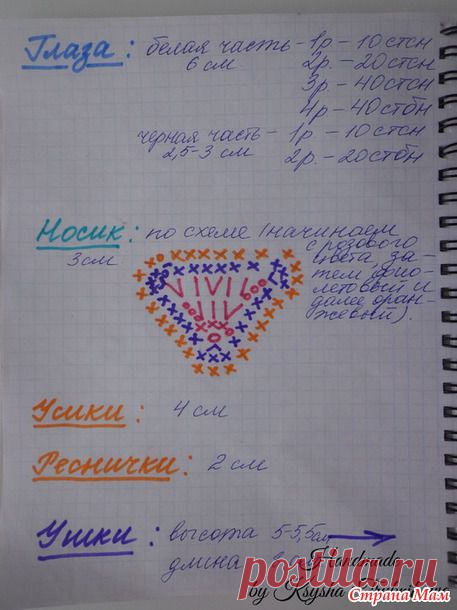 Глаза: белая часть - 1р - 10 стсн
6 см 2р. - 20стсн
3р - 40стсн
4р - 40стбн
черная часть - 1р - 10стсн
2,5-3 см 2р. - 20стбн
Носик: по схеме (начинаем
3см с розового
цвета, за-
тем фио-
летовый и
далее оран-
жевый).
Усики: 4 см
Реснички: 2 см
Ушки: высота 5-5,5см
длина
Handmade
by Ksysha
postila.ru
Страна Мам